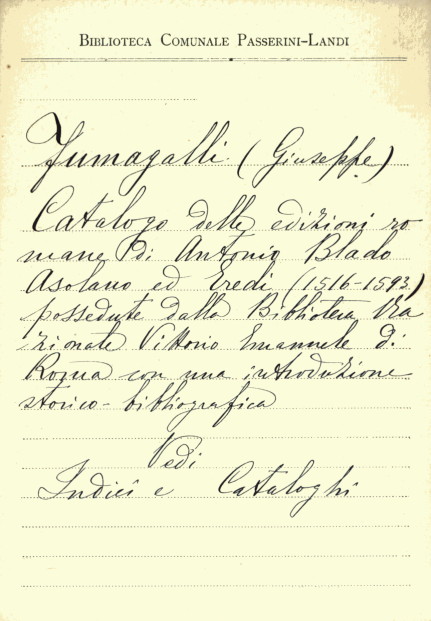 BIBLIOTECA COMUNALE PASSERINI-LANDI
Fumagalli (Giuseppe)
Catalogo delle edizioni ro
mane di Antonio Blado
Asolano ed Eredi (1516-1593)
possedute dalla Biblioteca Na
zionale Vittorio Emanuele di
Roma con una introduzione
storico-bibliografica
Vedi
Indici e Cataloghi